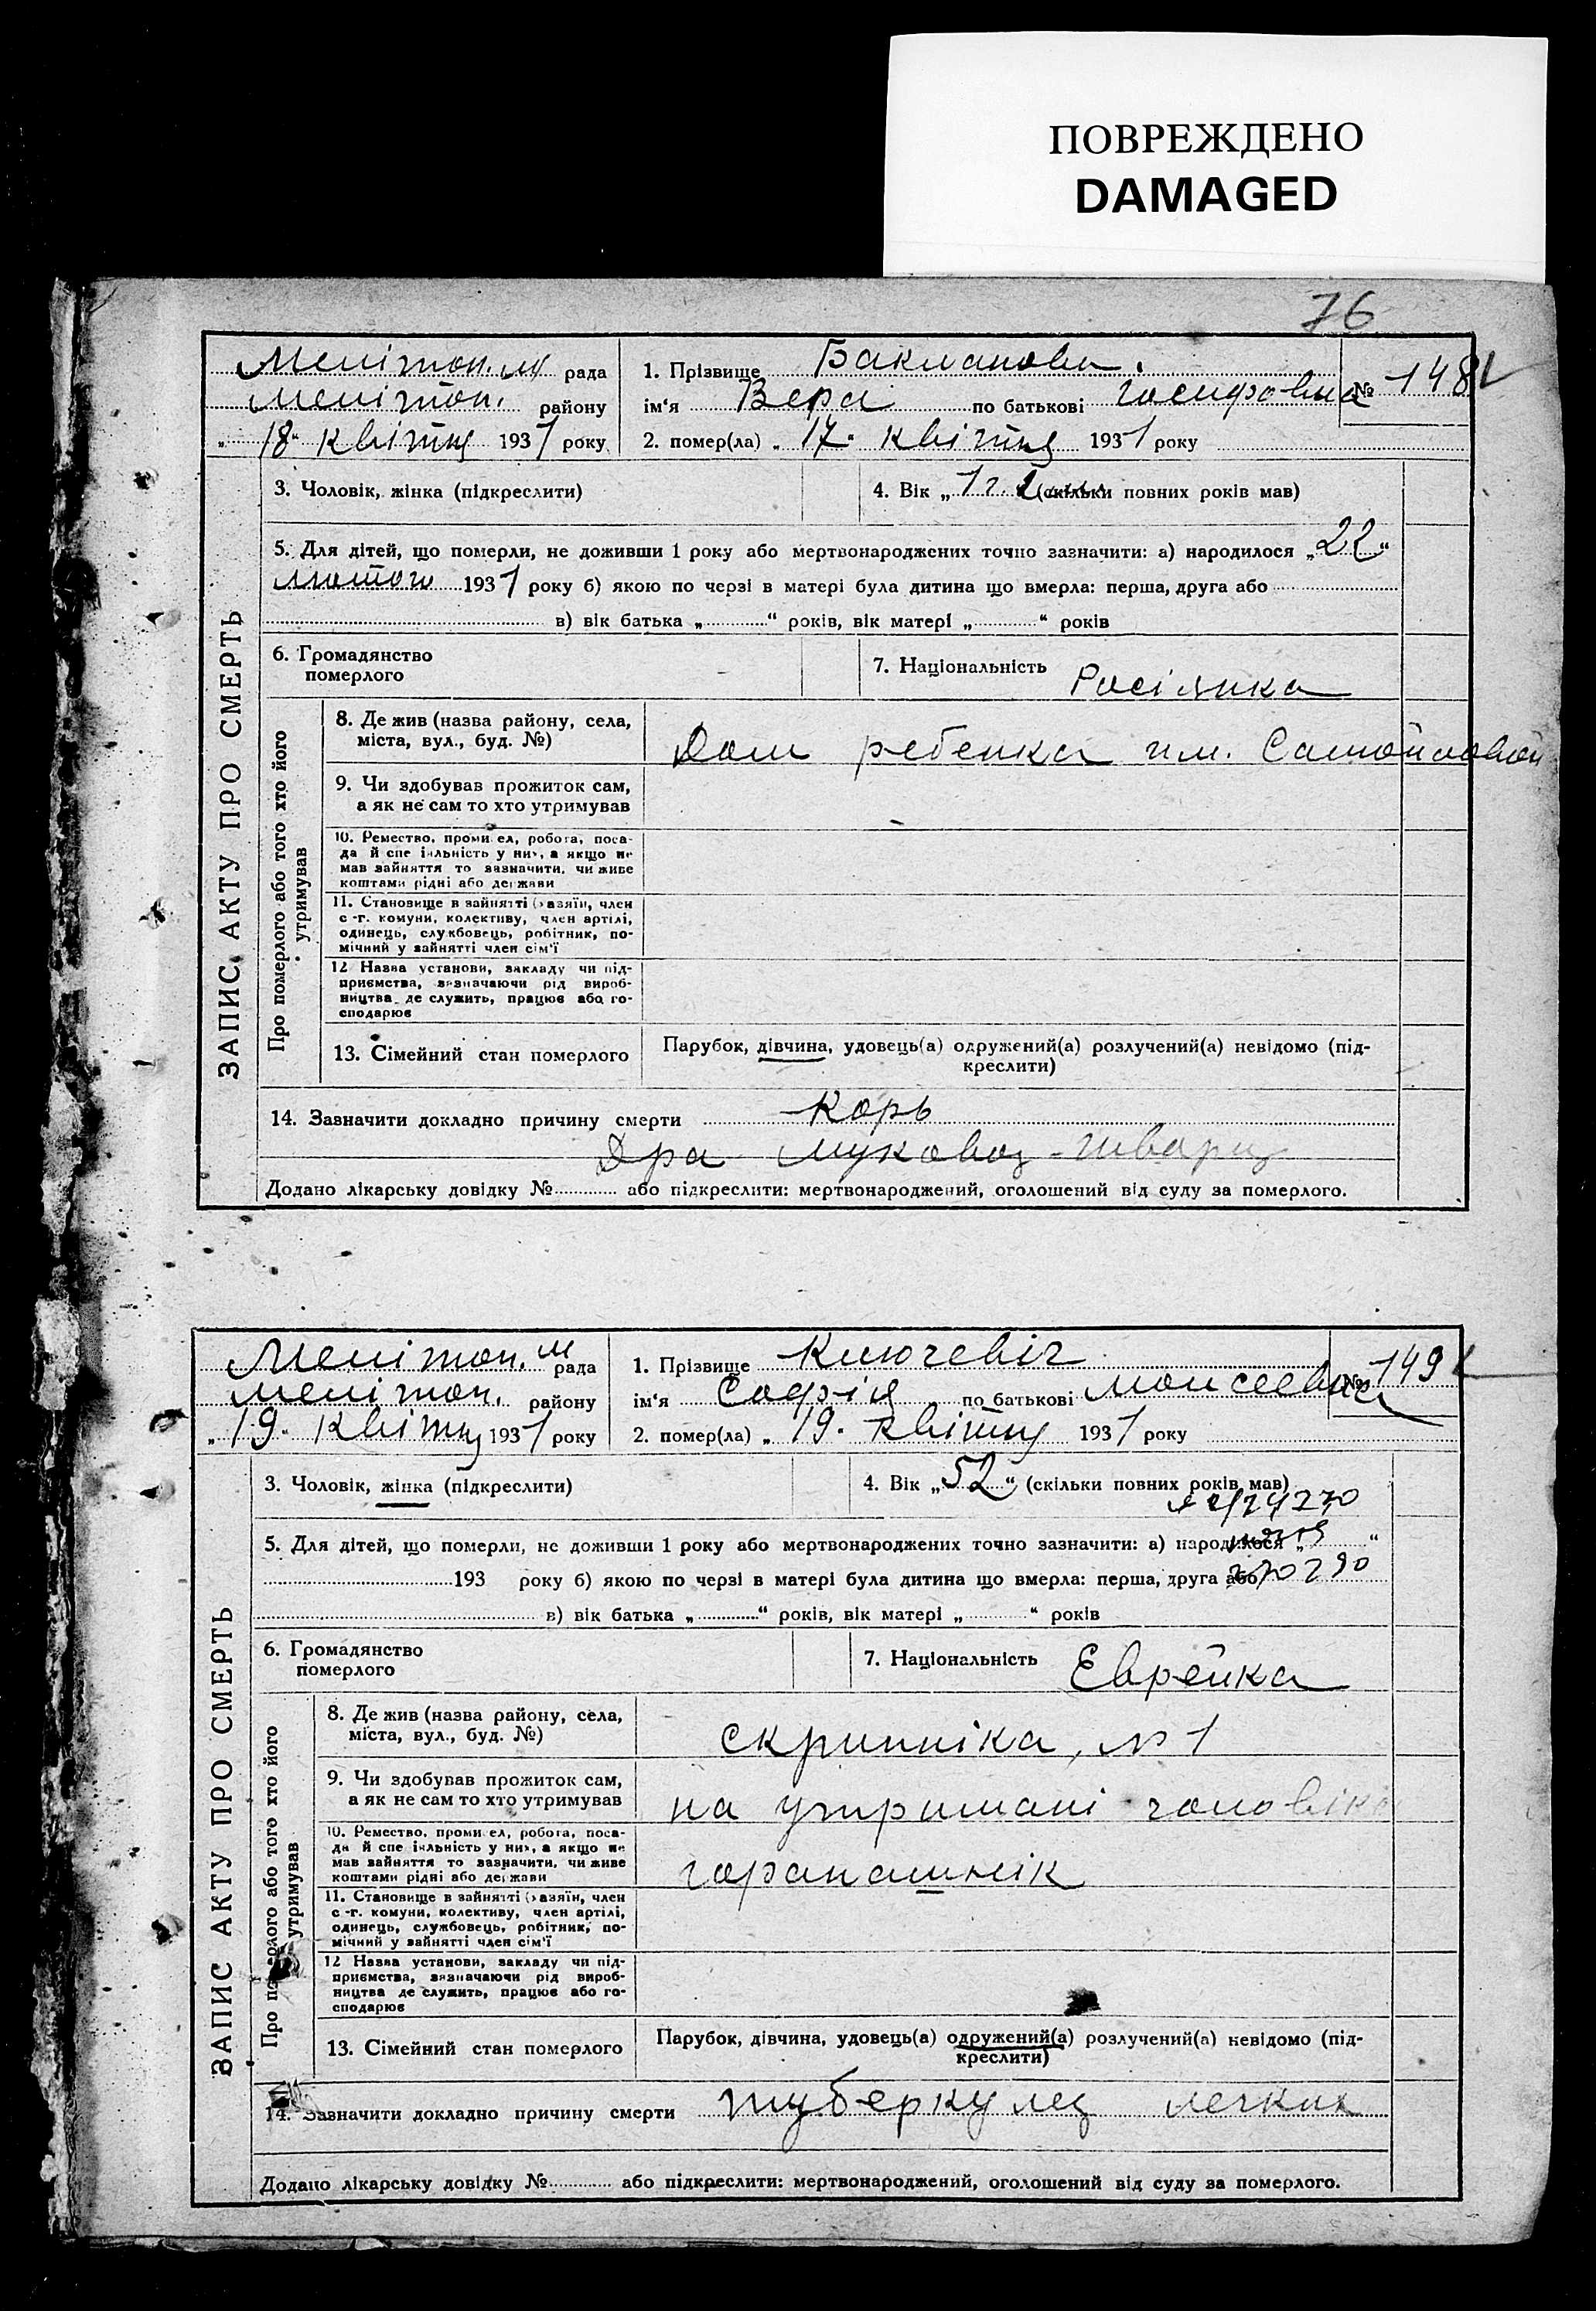 ПОВРЕЖДЕНО
DAMAGED
76
ЗАПИС АКТУ ПРО СМЕРТЬ
Мелітоп. м рада
Мелітоп. району
„18“ квітня 1931 року
1. Прізвище Бакланова
№ 148
ім‘я Вера по батькові Іосифовна
2. помер(ла) „17“ квітня 1931 року
3. Чоловік, жінка (підкреслити)
4. Вік „1 г. (скільки повних років мав)
5. Для дітей, що померли, не доживши 1 року або мертвонароджених точно зазначити: а) народилося „22“
лютого 1931 року б) якою по черзі в матері була дитина що вмерла: перша, друга або
в) вік батька „ “ років, вік матері „ “ років
6. Громадянство
померлого
7. Національність Росіянка
Про померлого або того хто його
утримував
8. Де жив (назва району, села,
міста, вул., буд. №)
Дом ребенка им. Самойловой
9. Чи здобував прожиток сам,
а як не сам то хто утримував
10. Ремество, промисел, робота, поса-
да й спеціяльність у них, а якщо не
мав зайняття то зазначити, чи живе
коштами рідні або держави
11. Становище в зайнятті (хазяїн, член
с-г. комуни, колективу, член артілі,
одинець, службовець, робітник, по-
мічний у зайнятті член сім‘ї
12 Назва установи, закладу чи під-
приємства, зазначаючи рід вироб-
ництва де служить, працює або го-
сподарює
13. Сімейний стан померлого
Парубок, дівчина, удовець(а) одружений(а) розлучений(а) невідомо (під-
креслити)
14. Зазначити докладно причину смерти Корь
Дра Муковоз-Шварц
Додано лікарську довідку № або підкреслити: мертвонароджений, оголошений від суду за померлого.
ЗАПИС АКТУ ПРО СМЕРТЬ
Мелітоп. м рада
Мелітоп. району
„19“ квітня 1931 року
1. Прізвище Ключевіч
№ 149
ім‘я Софія по батькові Моисеевна
2. помер(ла) „19“ квітня 1931 року
3. Чоловік, жінка (підкреслити)
4. Вік „52“ (скільки повних років мав)
5. Для дітей, що померли, не доживши 1 року або мертвонароджених точно зазначити: а) народилося „ “
193 року б) якою по черзі в матері була дитина що вмерла: перша, друга або
в) вік батька „ “ років, вік матері „ “ років
6. Громадянство
померлого
7. Національність Еврейка
Про померлого або того хто його
утримував
8. Де жив (назва району, села,
міста, вул., буд. №)
Скрипніка, № 1
9. Чи здобував прожиток сам,
а як не сам то хто утримував
на утримані чоловіка
10. Ремество, промисел, робота, поса-
да й спеціяльність у них, а якщо не
мав зайняття то зазначити, чи живе
коштами рідні або держави
11. Становище в зайнятті (хазяїн, член
с-г. комуни, колективу, член артілі,
одинець, службовець, робітник, по-
мічний у зайнятті член сім‘ї
12 Назва установи, закладу чи під-
приємства, зазначаючи рід вироб-
ництва де служить, працює або го-
сподарює
13. Сімейний стан померлого
Парубок, дівчина, удовець(а) одружений(а) розлучений(а) невідомо (під-
креслити)
14. Зазначити докладно причину смерти туберкулез легких
Додано лікарську довідку № або підкреслити: мертвонароджений, оголошений від суду за померлого.